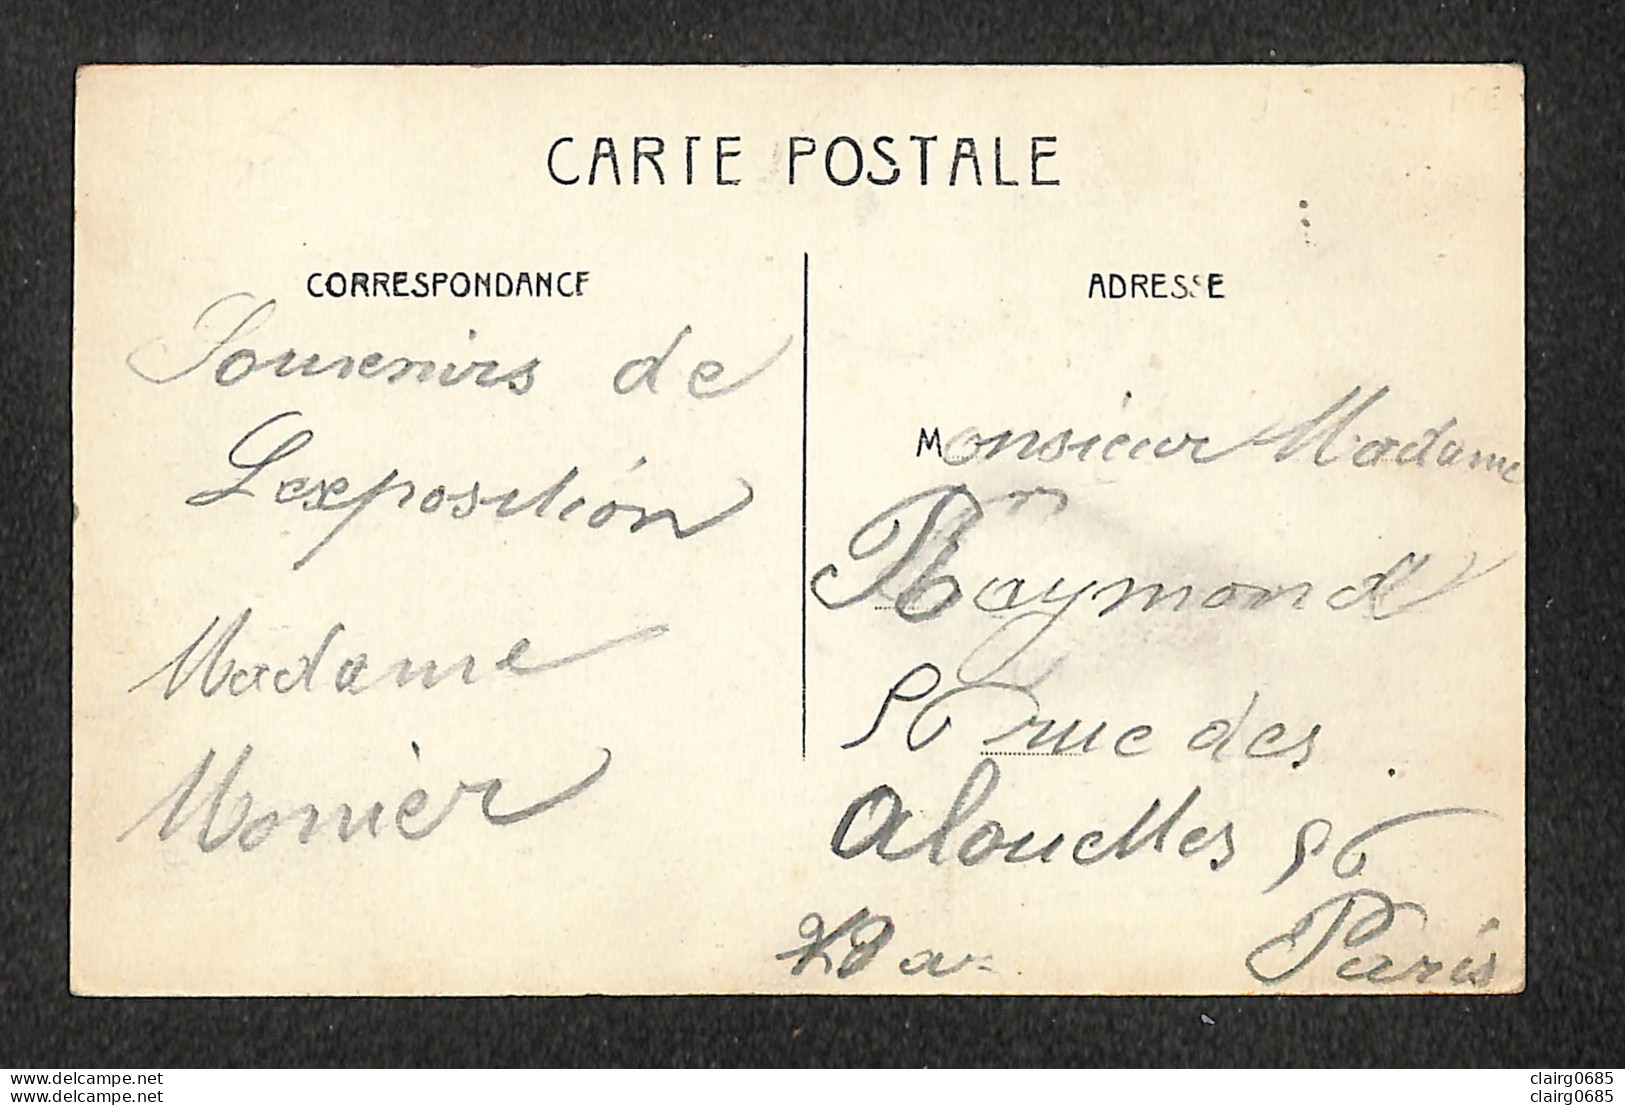 CARTE POSTALE
CORRESPONDANCE
Souvenirs de
Lexposition
Madame
Monier
ADRESSE
Monsieur Madame
Raymond
56 rue des
alouettes 56
Paris
www.delcampe.net
clairg0685
clairg0685